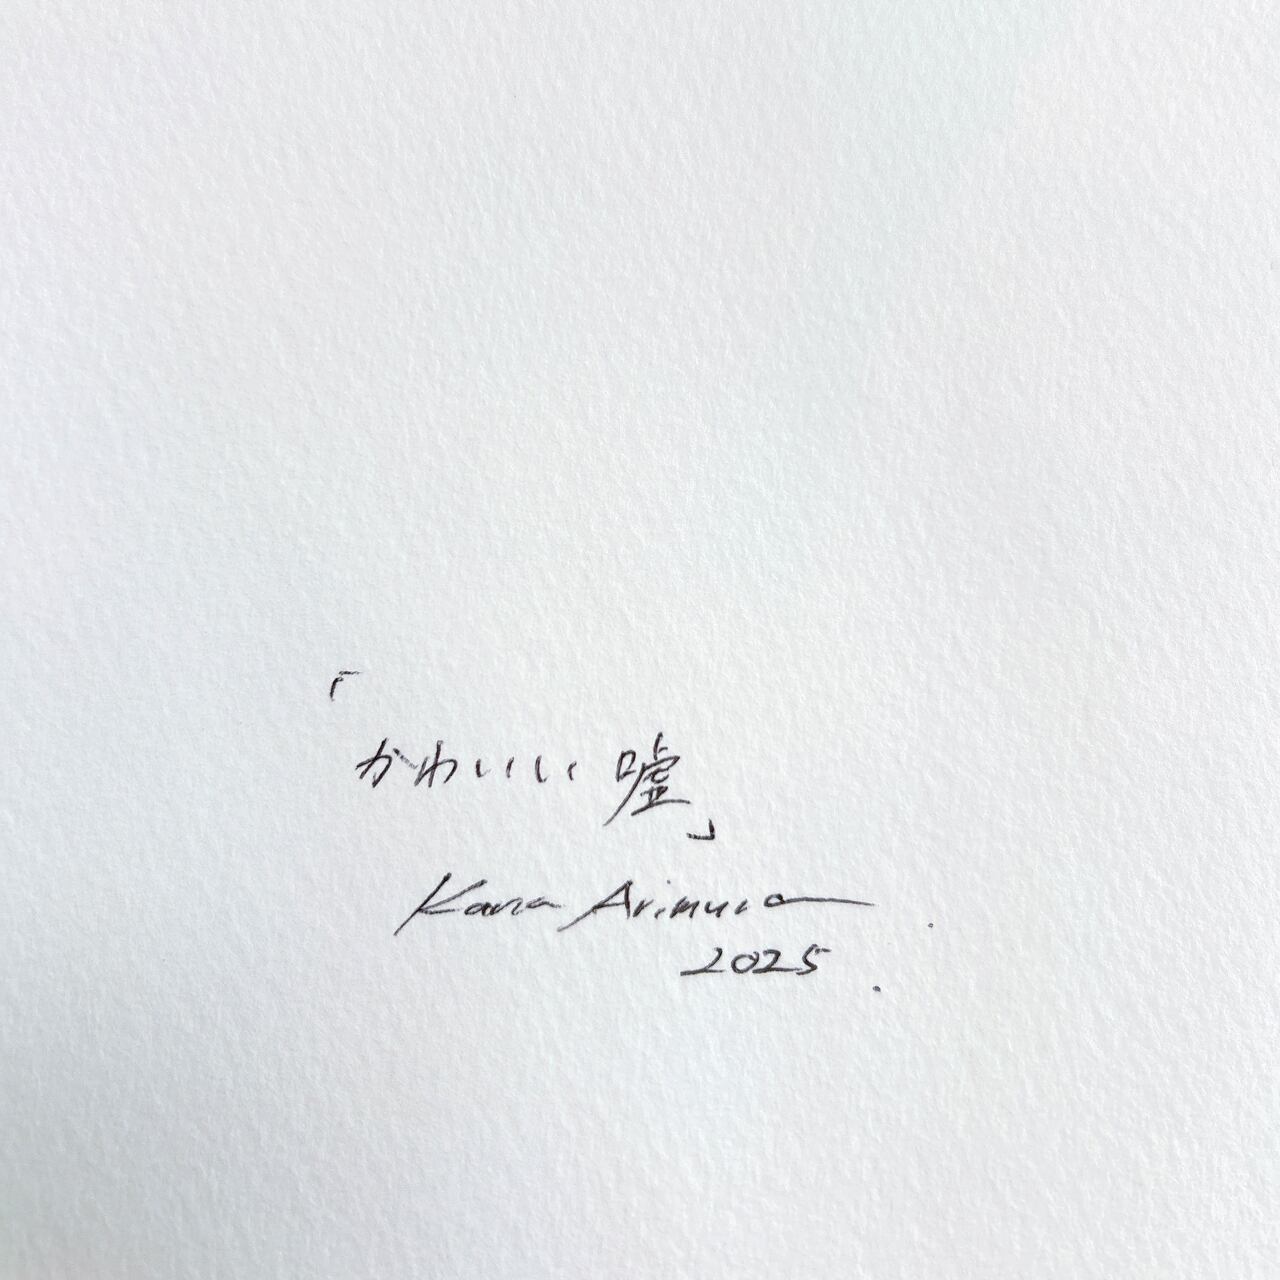 「かわいい嘘」
Kana Arimura
2025.